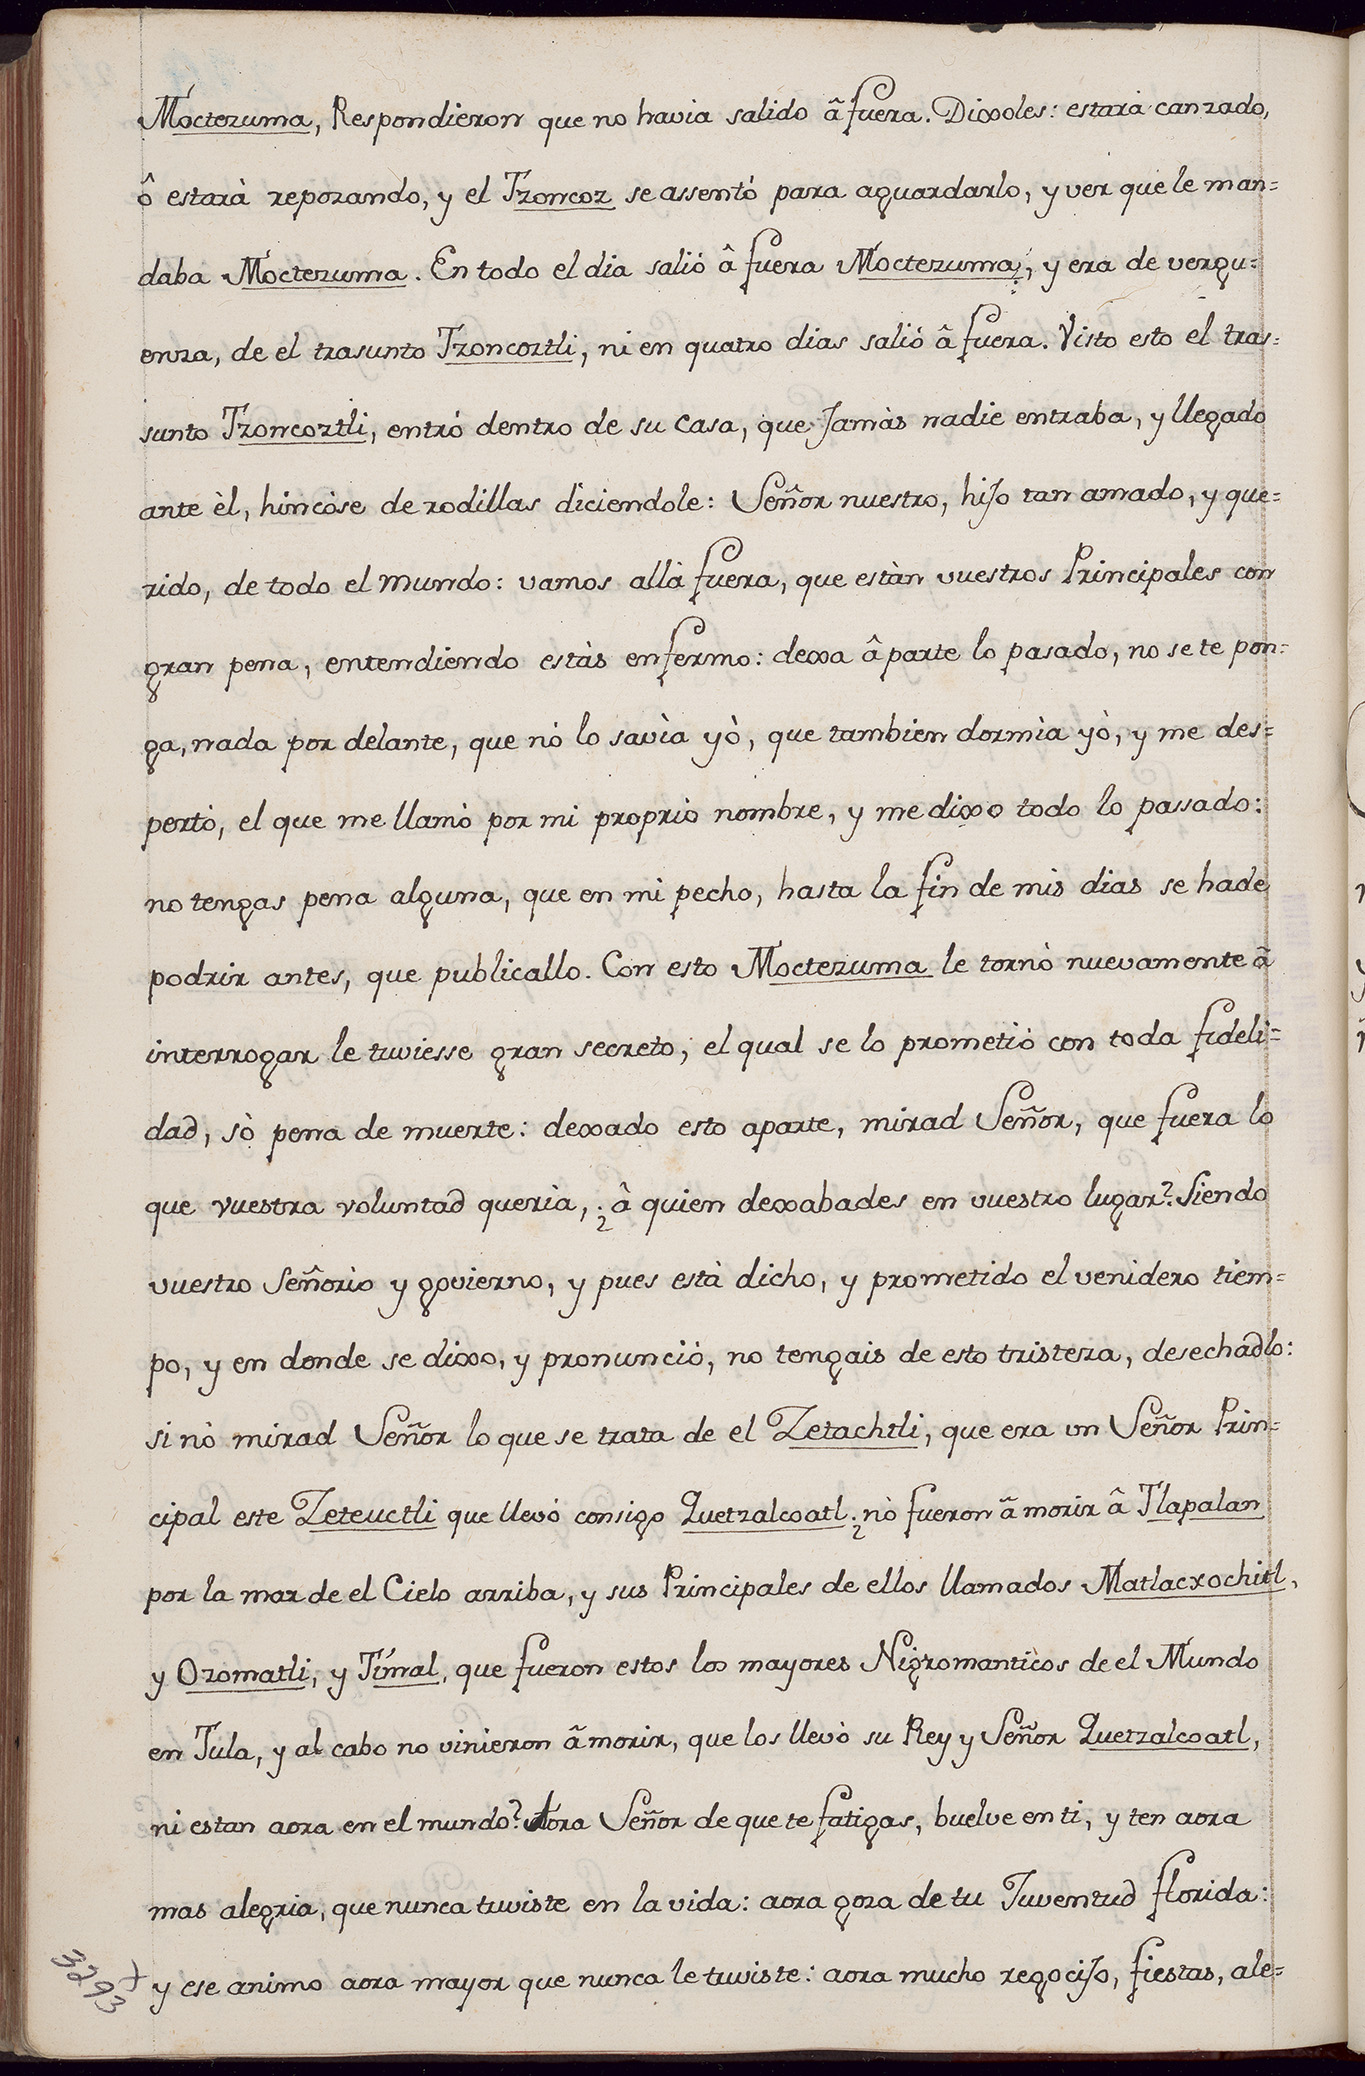 Moctezuma, Respondieron que no havia salido â fuera. Dixoles: estarà canzado,
ô estarà reposando, y el Tzoncoz se assentó para aguardarlo, y ver que le man=
daba Moctezuma. En todo el dia salió â fuera Moctezuma, y era de vergu=
enza, de el trasunto Tzoncoztli, ni en quatro dias salió â fuera. Visto esto el tras=
sunto Tzoncoztli, entró dentro de su casa, que Jamàs nadie entraba, y llegado
ante èl, hincòse de rodillas diciendole: Señor nuestro, hiJo tan amado, y que=
rido, de todo el mundo: vamos allà fuera, que estàn vuestros Principales con
gran pena, entendiendo estàs enfermo: dexa â parte lo pasado, no se te pon=
ga, nada por delante, que nó lo savìa yò, que tambien dormìa yò, y me des=
pertò, el que me llamò por mi proprio nombre, y me dixo todo lo passado:
no tengas pena alguna, que en mi pecho, hasta la fin de mis dias se hade
podrir antes, que publicallo. Con esto Moctezuma le tornò nuevamente â
interrogar le tuviesse gran secreto, el qual se lo prometiò con toda fideli=
dad, sò pena de muerte: dexado esto aparte, mirad Señor, que fuera lo
que vuestra voluntad querìa, ¿â quien dexabades en vuestro lugar? Siendo
vuestro Señorìo y govierno, y pues està dicho, y prometido el venidero tiem=
po, y en donde se dixo, y pronunció, no tengais de esto tristeza, desechadlo:
si nò mirad Señor lo que se trata de el Zetachtli, que era un Señor Prin=
cipal este Zeteuctli que llevó consigo Quetzalcoatl ¿nò fueron â morir â Tlapalan
por la mar de el Cielo arriba, y sus Principales de ellos llamados Matlacxochitl,
y Ozomatli, y Timal, que fueron estos los mayores Nigromanticos de el Mundo
en Tula, y al cabo no vinieron â morir, que los llevò su Rey y Señor Quetzalcoatl,
ni estan aora en el mundo? Aora Señor de que te fatigas, buelve en ti, y ten aora
mas alegria, que nunca tuviste en la vida: aora goza de tu Juventud florida:
y ese animo aora mayor que nunca le tuviste: aora mucho regociJo, fiestas, ale=
3293